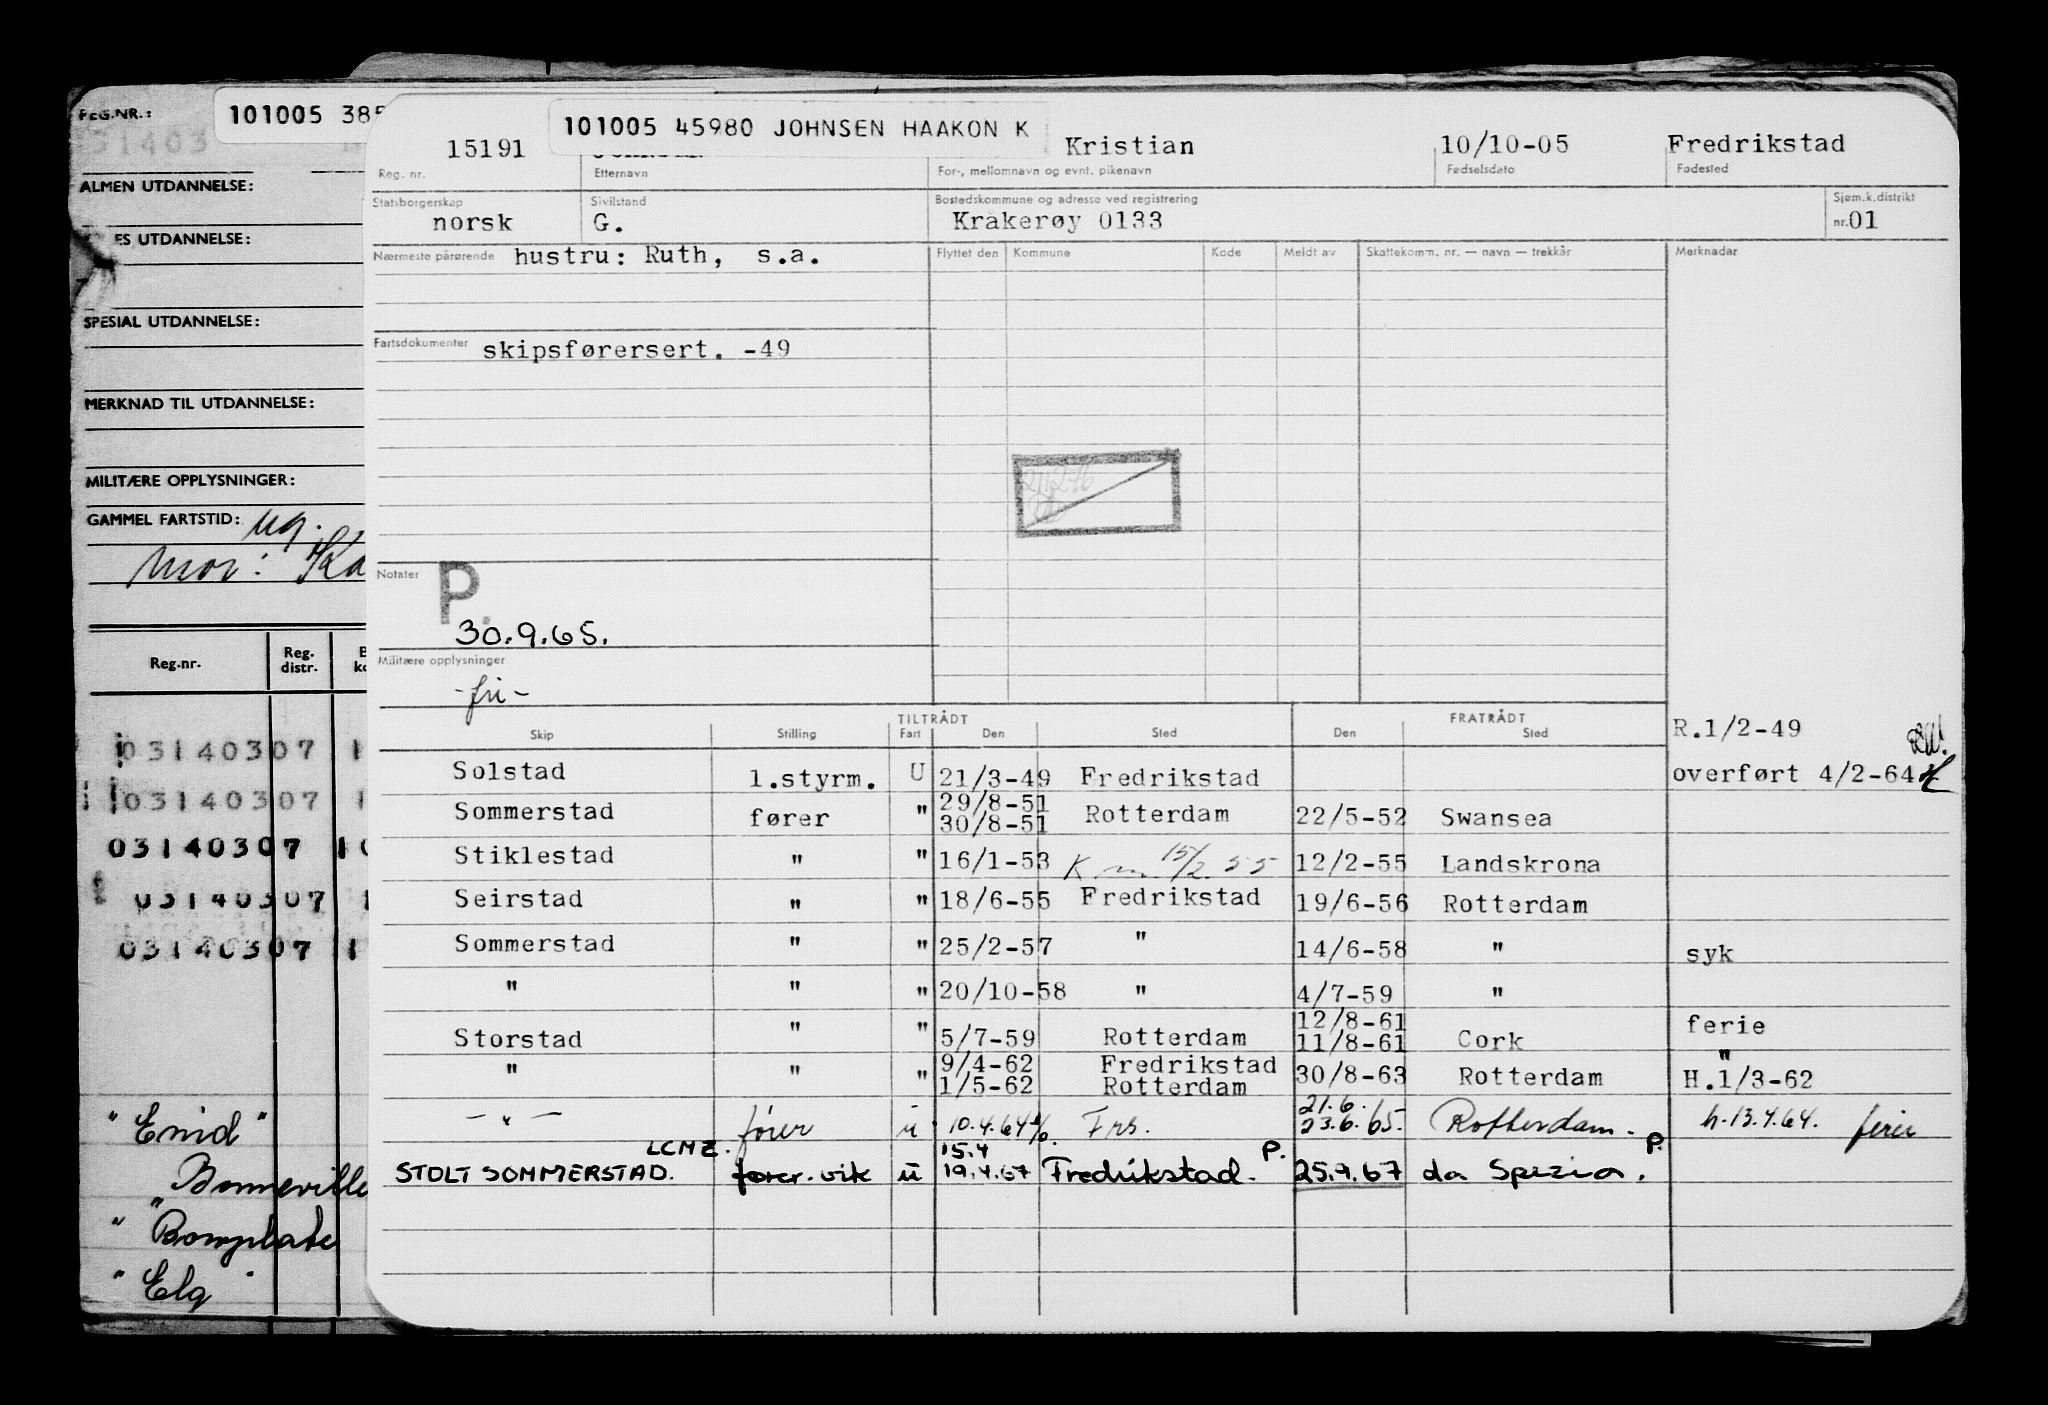 REG.NR.:
101005 385
31403
ALMEN UTDANNELSE:
ES UTDANNELSE:
SPESIAL UTDANNELSE:
MERKNAD TIL UTDANNELSE:
MILITÆRE OPPLYSNINGER:
GAMMEL FARTSTID: ug.
mor: Ka
Reg.nr. Reg. distr.
03140307 1
03140307 1
03140307 10
03140307 1
03140307 1
"Enid"
"Bonneville
"Bomplate
"Elg"
101005 45980 JOHNSEN HAAKON K
15191 Kristian 10/10-05 Fredrikstad
Reg. nr. Etternavn For-, mellomnavn og evnt. pikenavn Fødselsdato Fødested
Statsborgerskap Sivilstand Bostedskommune og adresse ved registrering Sjøm.k.distrikt
norsk G. Kråkerøy 0133 nr. 01
Nærmeste pårørende hustru: Ruth, s.a. Flyttet den Kommune Kode Meldt av Skattekomm. nr. — navn — trekkår Merknader
Fartsdokumenter skipsførersert. -49
Notater P.
30.9.65.
Militære opplysninger
-fri-
TILTRÅDT FRATRÅDT
Skip Stilling Fart Den Sted Den Sted
R.1/2-49
overført 4/2-64
Solstad 1.styrm. U 21/3-49 Fredrikstad
Sommerstad fører " 29/8-51 30/8-51 Rotterdam 22/5-52 Swansea
Stiklestad " " 16/1-53 15/2.55 12/2-55 Landskrona
Seirstad " " 18/6-55 Fredrikstad 19/6-56 Rotterdam
Sommerstad " " 25/2-57 " 14/6-58 " syk
" " " 20/10-58 " 4/7-59 "
Storstad " " 5/7-59 Rotterdam 12/8-61 11/8-61 Cork ferie
" " " 9/4-62 1/5-62 Fredrikstad Rotterdam 30/8-63 Rotterdam " H.1/3-62
- " - fører u 10.4.64 Frs. 21.6. 23.6.65. Rotterdam. h.13.4.64. ferie
STOLT SOMMERSTAD. LCMZ. fører. vik u 15.4 19.4.67 Fredrikstad. P. 25.9.67 da Spezia. P.